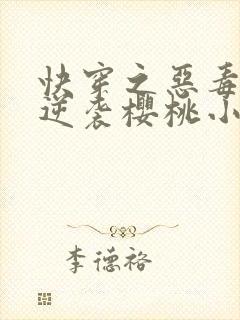 快穿之惡毒
逆袭櫻桃小
李德裕